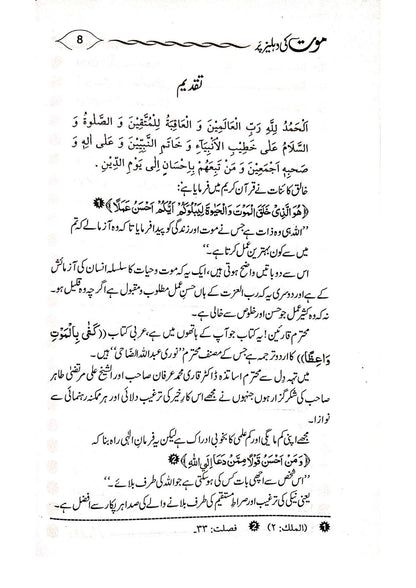 موت کی دہلیز پر
8
تقدیم
اَلْحَمْدُ لِلّٰهِ رَبِّ الْعَالَمِيْنَ وَ الْعَاقِبَةُ لِلْمُتَّقِيْنَ وَ الصَّلٰوةُ وَ
السَّلَامُ عَلٰى خَطِيْبِ الْاَنْبِيَآءِ وَ خَاتَمِ النَّبِيِّيْنَ وَ عَلٰى اٰلِهٖ وَ
صَحْبِهٖ اَجْمَعِيْنَ وَ مَنْ تَبِعَهُمْ بِاِحْسَانٍ اِلٰى يَوْمِ الدِّيْنِ .
خالق کائنات نے قرآن کریم میں فرمایا ہے:
﴿هُوَ الَّذِيْ خَلَقَ الْمَوْتَ وَ الْحَيٰوةَ لِيَبْلُوَكُمْ اَيُّكُمْ اَحْسَنُ عَمَلًا﴾ ❶
”اللہ ہی وہ ذات ہے جس نے موت اور زندگی کو پیدا فرمایا تا کہ وہ آزمائے کہ تم
میں سے کون بہترین عمل کرتا ہے۔“
اس سے دو باتیں واضح ہوتی ہیں، ایک یہ کہ موت و حیات کا سلسلہ انسان کی آزمائش
کے لیے ہے اور دوسری یہ کہ رب العزت کے ہاں حسنِ عمل مطلوب و مقبول ہے اگرچہ وہ قلیل ہو۔
نہ کہ وہ کثیر عمل جو حسن اور خلوص سے خالی ہے۔
محترم قارئین! یہ کتاب جو آپ کے ہاتھوں میں ہے، عربی کتاب ((كَفٰى بِالْمَوْتِ
وَاعِظًا)) کا اردو ترجمہ ہے جس کے مصنف محترم ”نوری عبداللہ الضاحی“ ہیں۔
میں تہہ دل سے محترم اساتذہ ڈاکٹر قاری محمد عرفان صاحب اور الشیخ علی مرتضٰی طاہر
صاحب کی شکر گزار ہوں جنہوں نے مجھے اس کارِ خیر کی ترغیب دلائی اور ہر ممکنہ رہنمائی سے
نوازا۔
مجھے اپنی کم مائیگی اور کم علمی کا بخوبی ادراک ہے لیکن یہ فرمانِ الٰہی راہ بنا کہ
﴿وَ مَنْ اَحْسَنُ قَوْلًا مِّمَّنْ دَعَا اِلَى اللّٰهِ﴾ ❷
”اس شخص سے اچھی بات کس کی ہو سکتی ہے جو اللہ کی طرف بلائے۔“
یعنی نیکی کی ترغیب اور صراطِ مستقیم کی طرف بلانے والے کی صدا ہر پکار سے افضل ہے۔
❶ (الملك: ٢) ❷ فصلت: ٣٣۔